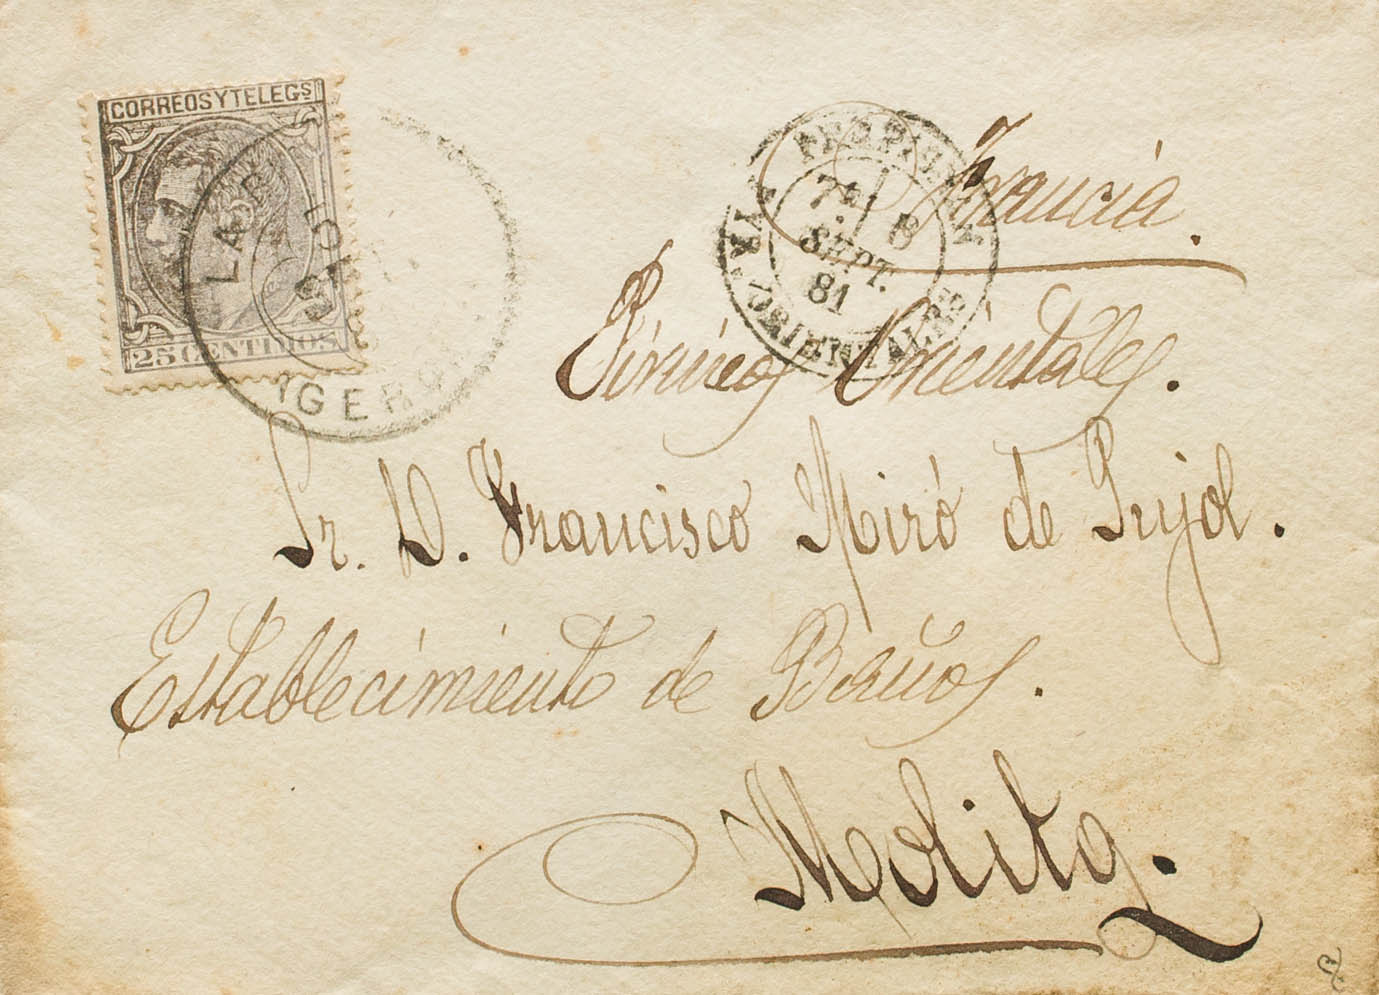 CORREOS Y TELEGS
25 CENTIMOS
LA B
GER
PERPIGNAN
7E 8
SEPT.
81
PYR. ORIENTALES
Francia.
Pirineos Orientales.
Sr. D. Francisco Miró de Pujol.
Establecimiento de Baños.
Molitg.